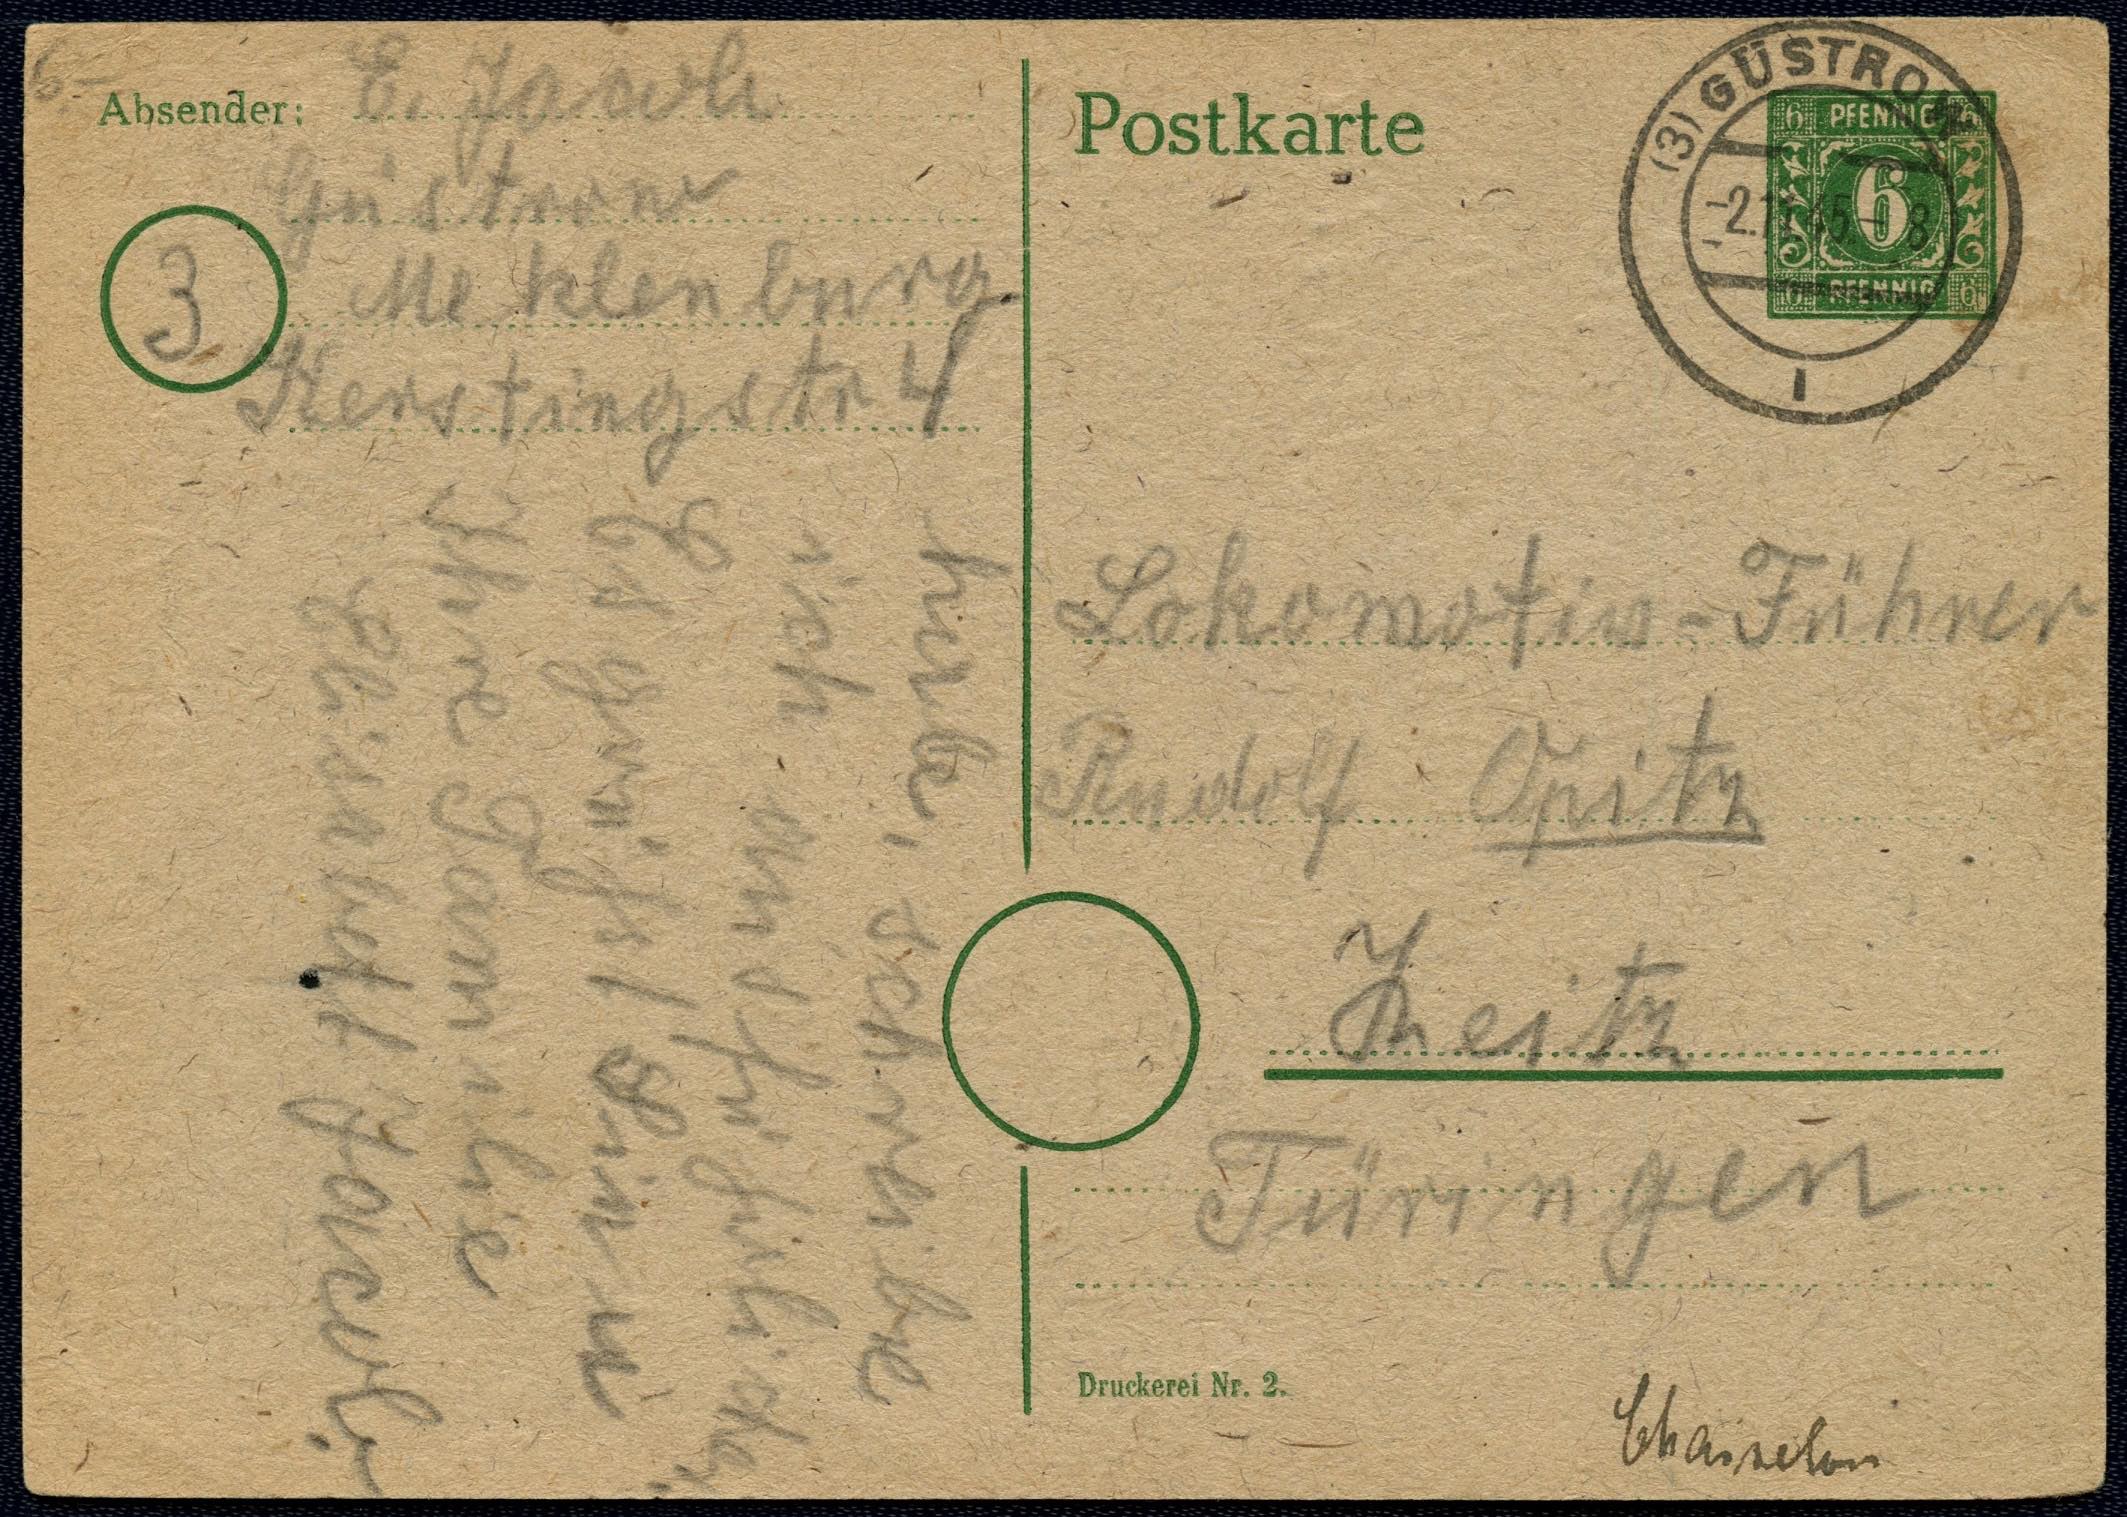 6.-
Absender: E. Jacob
Güstrow
Meklenburg
3
Kerstingstr 4
habe, schreibe
ich ausführlicher.
Es grüßt Sie u
Ihre Familie
Elisabeth Jacob.
Postkarte
(3) GÜSTROW
-2.11.45.-8
1
6 PFENNIG 6
6
6 PFENNIG 6
Lokomotiv-Führer
Rudolf Opitz
Zeitz
Türingen
Druckerei Nr. 2.